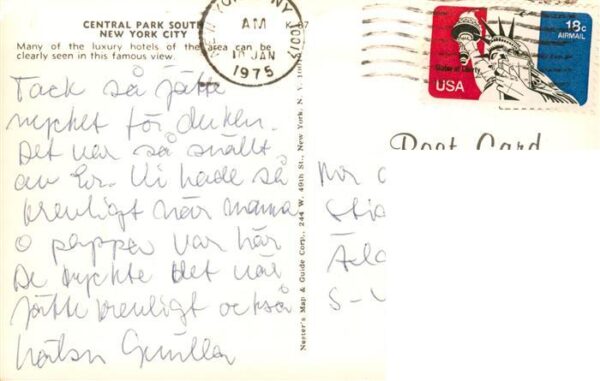 CENTRAL PARK SOUTH
NEW YORK CITY
Many of the luxury hotels of the area can be
clearly seen in this famous view.
NEW YORK, NY 10017
AM
16 JAN
1975
18c
AIRMAIL
Statue of Liberty
USA
Post Card
Tack så jätte
mycket för duken.
Det var så snällt
av Er. Vi hade så
trevligt när mamma
o pappa var här
De tyckte det var
jätte trevligt också
Gunilla
Nester's Map & Guide Corp., 244 W. 49th St., New York, N. Y. 100
S-